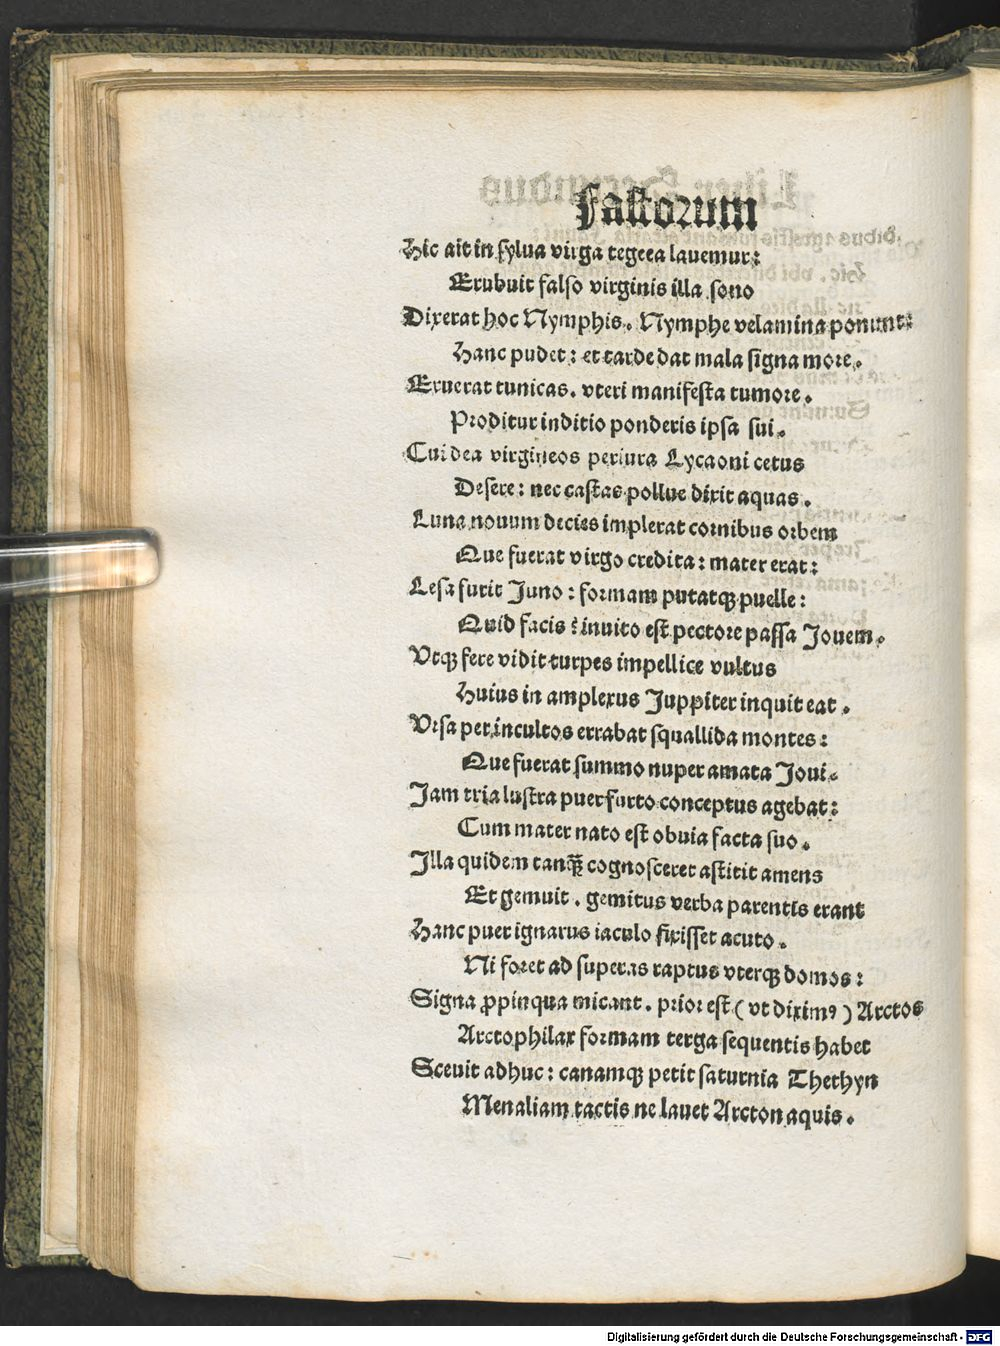 Fastorum
Hic ait in sylua virga tegeea lauemur:
Erubuit falso virginis illa sono
Dixerat hoc Nymphis. Nymphe velamina ponunt:
Hanc pudet: et tarde dat mala signa more.
Exuerat tunicas. vteri manifesta tumore.
Proditur inditio ponderis ipsa sui.
Cui dea virgineos periura Lycaoni cetus
Desere: nec castas pollue dixit aquas.
Luna nouum decies implerat cornibus orbem
Que fuerat virgo credita: mater erat:
Lesa furit Juno: formam putatqꝫ puelle:
Quid facis? inuito est pectore passa Jouem.
Vtqꝫ fere vidit turpes impellice vultus
Huius in amplexus Juppiter inquit eat.
Vrsa per incultos errabat squallida montes:
Que fuerat summo nuper amata Joui.
Jam tria lustra puer furto conceptus agebat:
Cum mater nato est obuia facta suo.
Illa quidem tanqꝫ̄ cognosceret astitit amens
Et gemuit. gemitus verba parentis erant
Hanc puer ignarus iaculo fixisset acuto.
Ni foret ad superas raptus vterqꝫ domos:
Signa ꝓpinqua micant. prior est (vt diximꝰ) Arctos
Arctophilax formam terga sequentis habet
Sceuit adhuc: canamqꝫ petit saturnia Thethyn
Menaliam tactis ne lauet Arcton aquis.
Digitalisierung gefördert durch die Deutsche Forschungsgemeinschaft - DFG